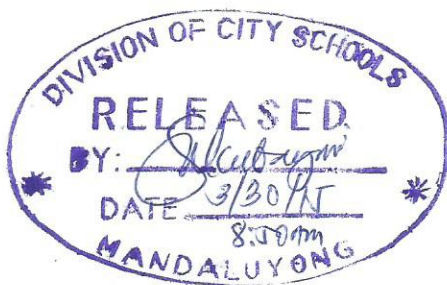 DIVISION OF CITY SCHOOLS
RELEASED
BY:
DATE 3/30/15
8:50am
MANDALUYONG